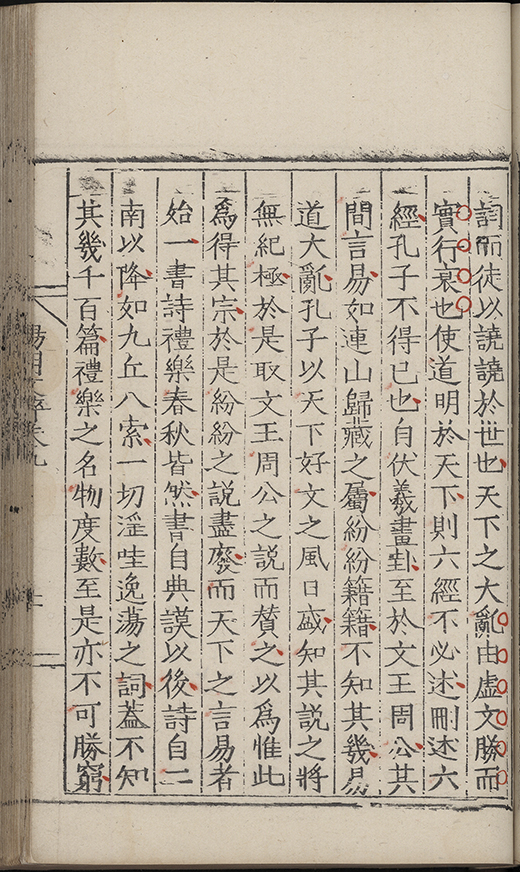 詞而徒以譊譊於世也天下之大亂由虛文勝而
實行衰也使道明於天下則六經不必述刪述六
經孔子不得已也自伏羲畫卦至於文王周公其
間言易如連山歸藏之屬紛紛籍籍不知其幾易
道大亂孔子以天下好文之風日盛知其說之將
無紀極於是取文王周公之說而賛之以爲惟此
爲得其宗於是紛紛之說盡廢而天下之言易者
始一書詩禮樂春秋皆然書自典謨以後詩自二
南以降如九丘八索一切淫哇逸蕩之詞蓋不知
其幾千百篇禮樂之名物度數至是亦不可勝窮